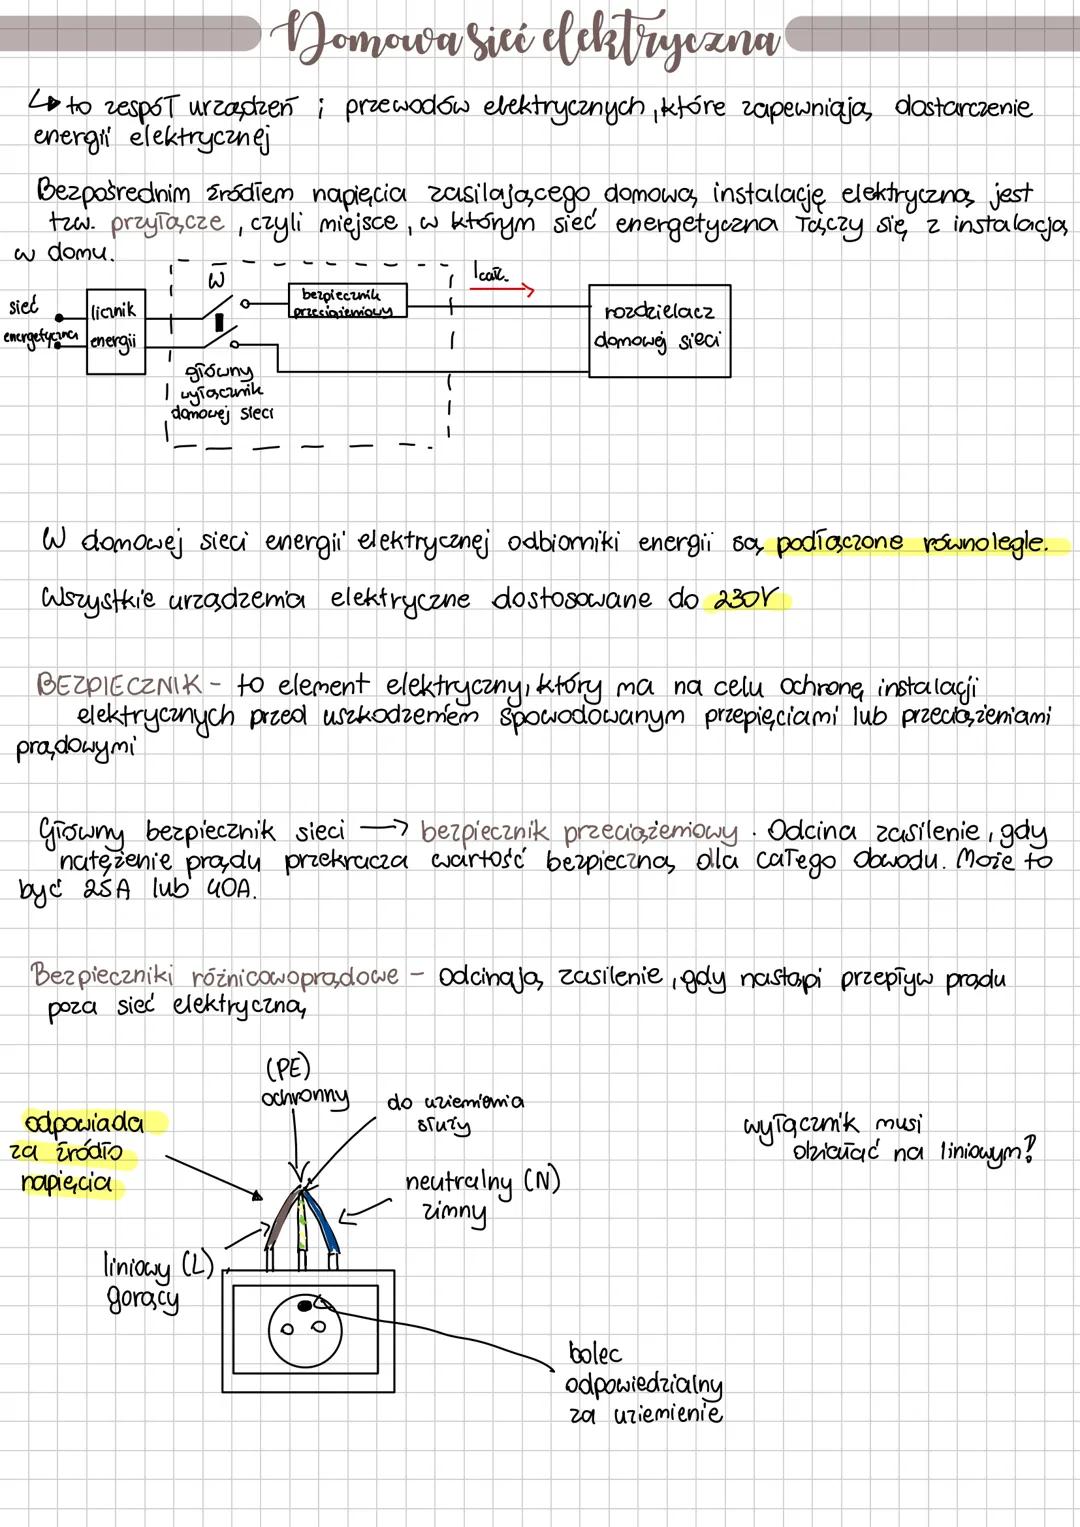 Domowa sieć elektryczna
↳ to zespół urządzeń i przewodów elektrycznych, które zapewniają dostarczenie
energii elektrycznej
Bezpośrednim źródłem napięcia zasilającego domową instalację elektryczną jest
tzw. przyłącze, czyli miejsce, w którym sieć energetyczna łączy się z instalacją
w domu.
W
Icałk.
sieć
energetyczna
licznik
energii
bezpiecznik
przeciążeniowy
rozdzielacz
domowej sieci
główny
wyłącznik
domowej sieci
W domowej sieci energii elektrycznej odbiorniki energii są podłączone równolegle.
Wszystkie urządzenia elektryczne dostosowane do 230V
BEZPIECZNIK - to element elektryczny, który ma na celu ochronę instalacji
elektrycznych przed uszkodzeniem spowodowanym przepięciami lub przeciążeniami
prądowymi
Główny bezpiecznik sieci → bezpiecznik przeciążeniowy. Odcina zasilenie, gdy
natężenie prądu przekracza wartość bezpieczną dla całego obwodu. Może to
być 25A lub 40A.
Bezpieczniki różnicowoprądowe - odcinają zasilenie, gdy nastąpi przepływ prądu
poza sieć elektryczną
(PE)
ochronny
do uziemienia
służy
odpowiada
za źródło
napięcia
wyłącznik musi
działać na liniowym!
neutralny (N)
zimny
liniowy (L)
gorący
bolec
odpowiedzialny
za uziemienie